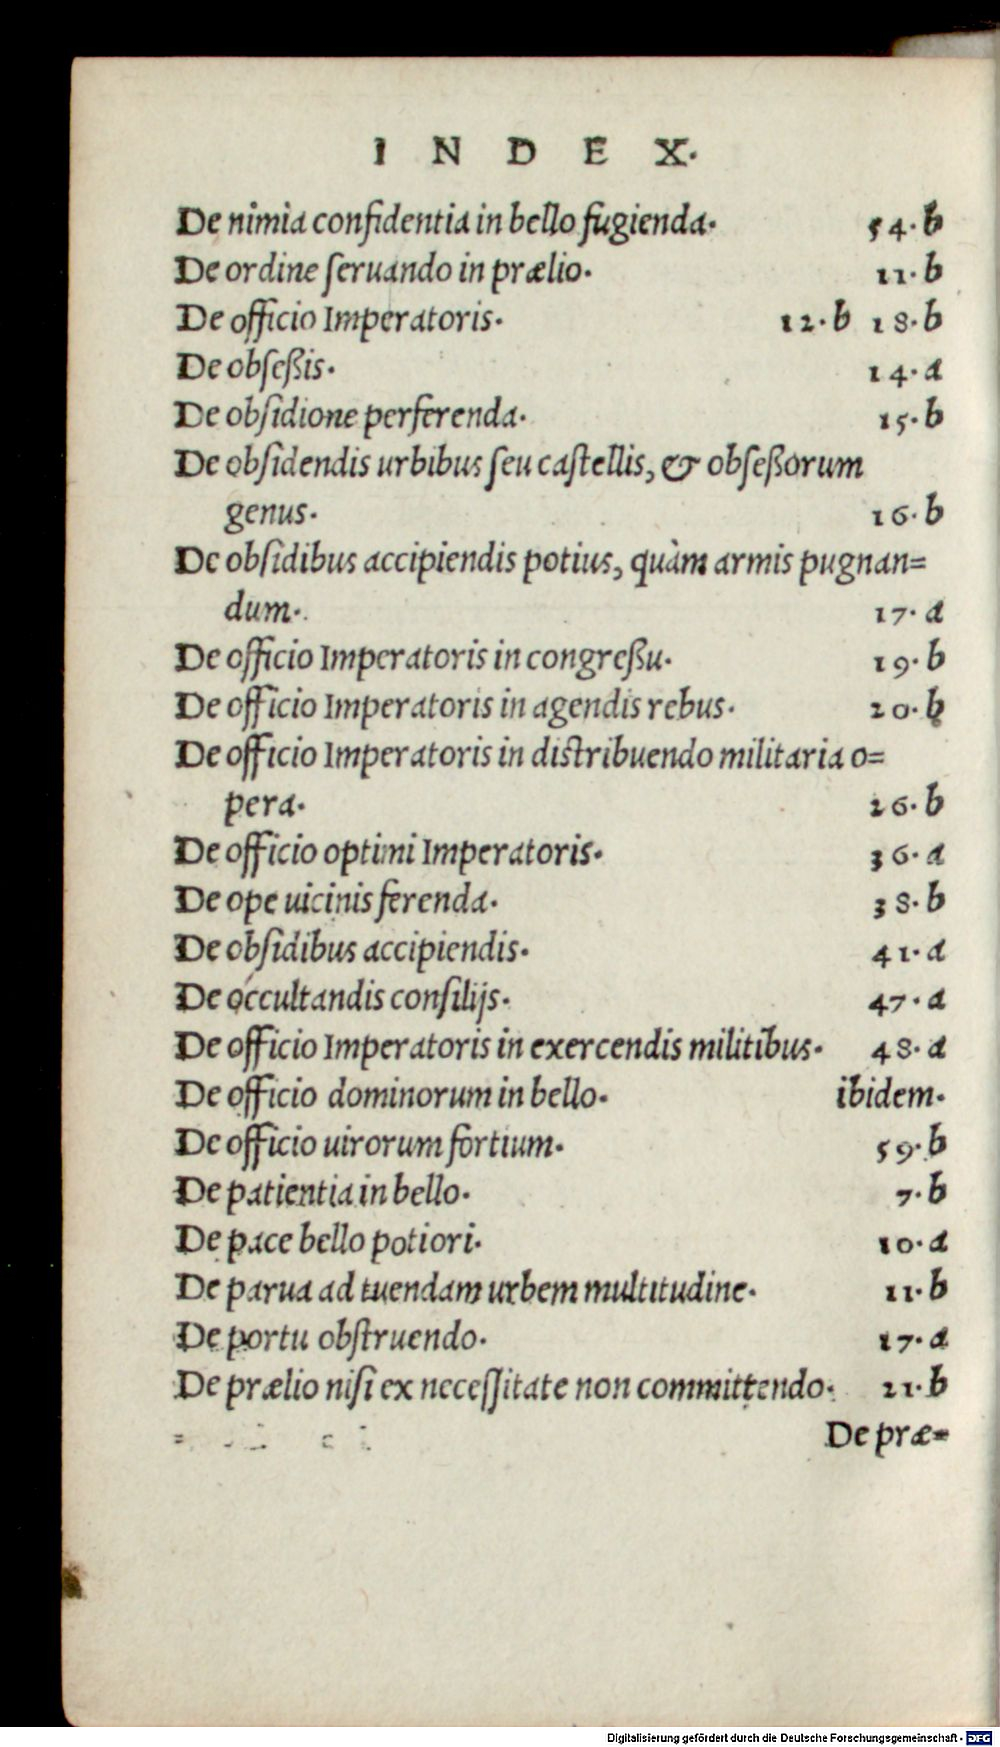 INDEX.
De nimia confidentia in bello fugienda. 54.b
De ordine ſeruando in prælio. 11.b
De officio Imperatoris. 12.b 18.b
De obſeßis. 14.a
De obſidione perferenda. 15.b
De obſidendis urbibus ſeu caſtellis, & obſeßorum
genus. 16.b
De obſidibus accipiendis potius, quàm armis pugnan=
dum. 17.a
De officio Imperatoris in congreßu. 19.b
De officio Imperatoris in agendis rebus. 20.b
De officio Imperatoris in diſtribuendo militaria o=
pera. 26.b
De officio optimi Imperatoris. 36.a
De ope uicinis ferenda. 38.b
De obſidibus accipiendis. 41.a
De occultandis conſilijs. 47.a
De officio Imperatoris in exercendis militibus. 48.a
De officio dominorum in bello. ibidem.
De officio uirorum fortium. 59.b
De patientia in bello. 7.b
De pace bello potiori. 10.a
De parua ad tuendam urbem multitudine. 11.b
De portu obſtruendo. 17.a
De prælio niſi ex neceſſitate non committendo. 21.b
De præ=
Digitalisierung gefördert durch die Deutsche Forschungsgemeinschaft - DFG